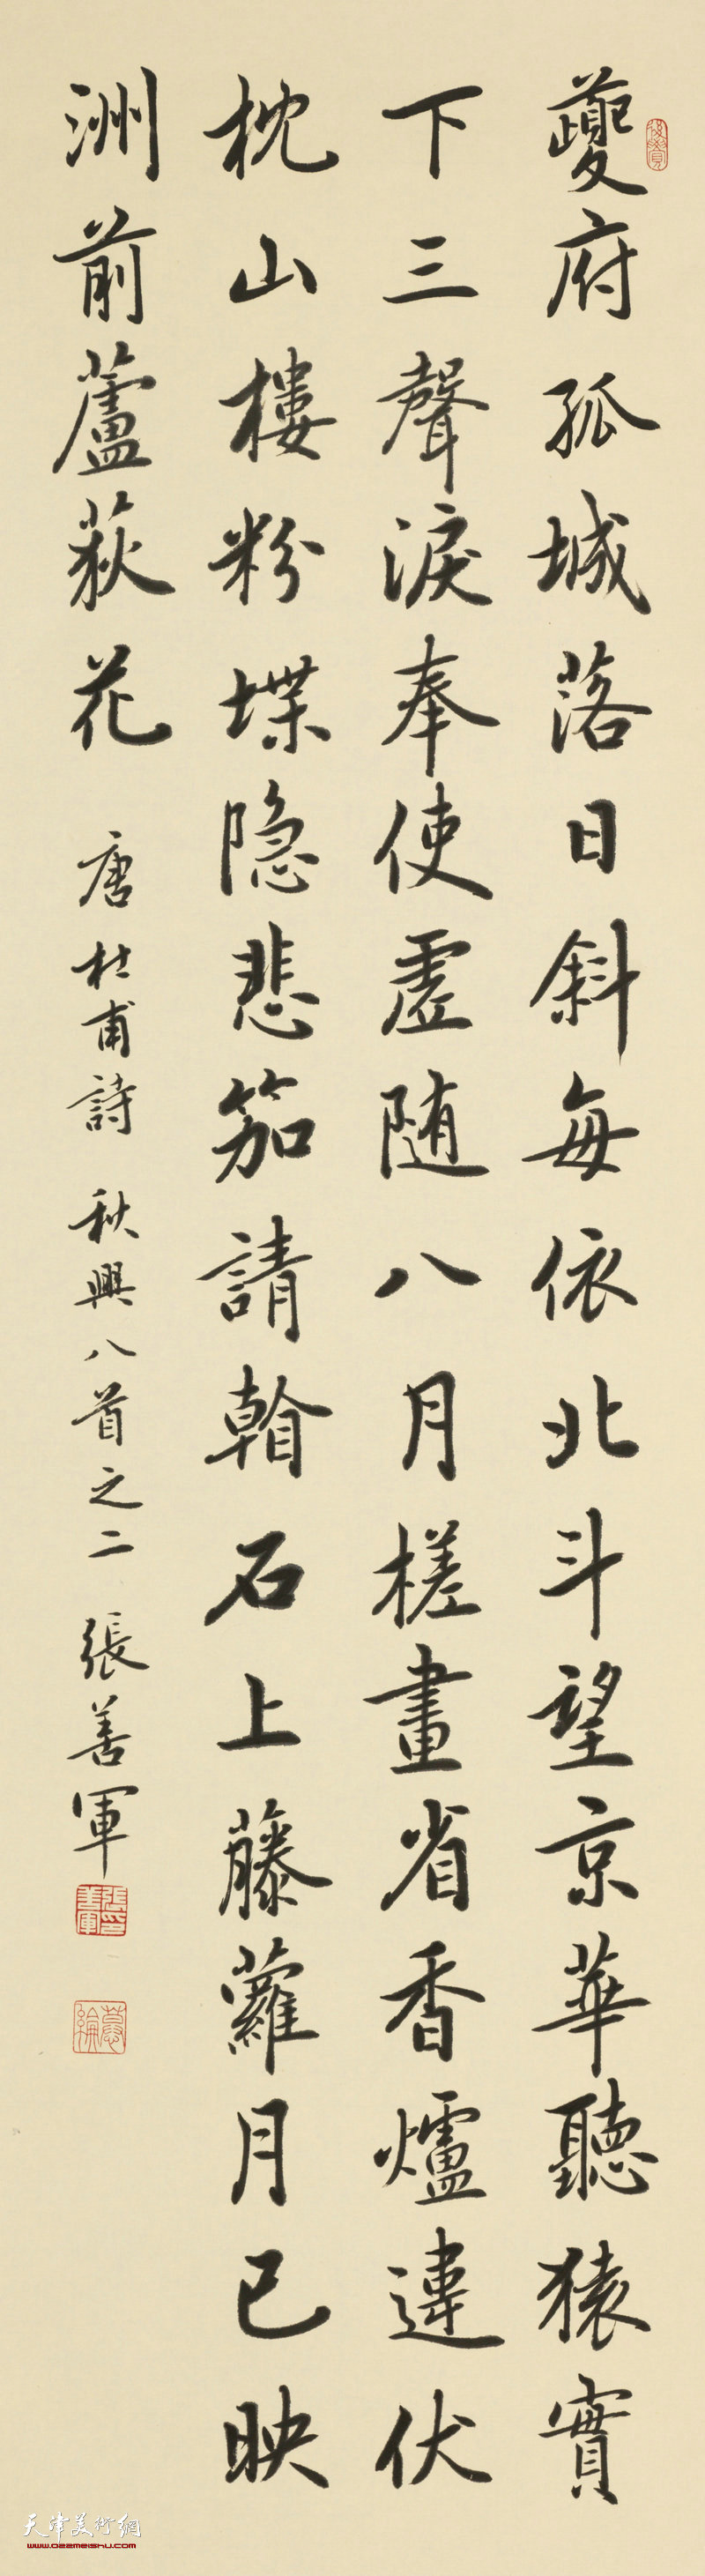 夔府孤城落日斜每依北斗望京華聽猿實
下三聲淚奉使虛随八月槎畫省香爐違伏
枕山樓粉堞隐悲笳請看石上藤蘿月已映
洲前蘆荻花
唐杜甫詩 秋興八首之二 張善軍
天津美術網
www.022meishu.com